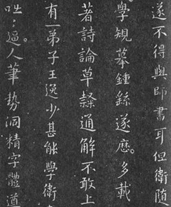 遂不得與師書耳但衛隨
學規摹鍾繇遂歷多載
著詩論草隸通解不敢上
有一弟子王逸少甚能學衛
咄〻逼人筆勢洞精字體遒